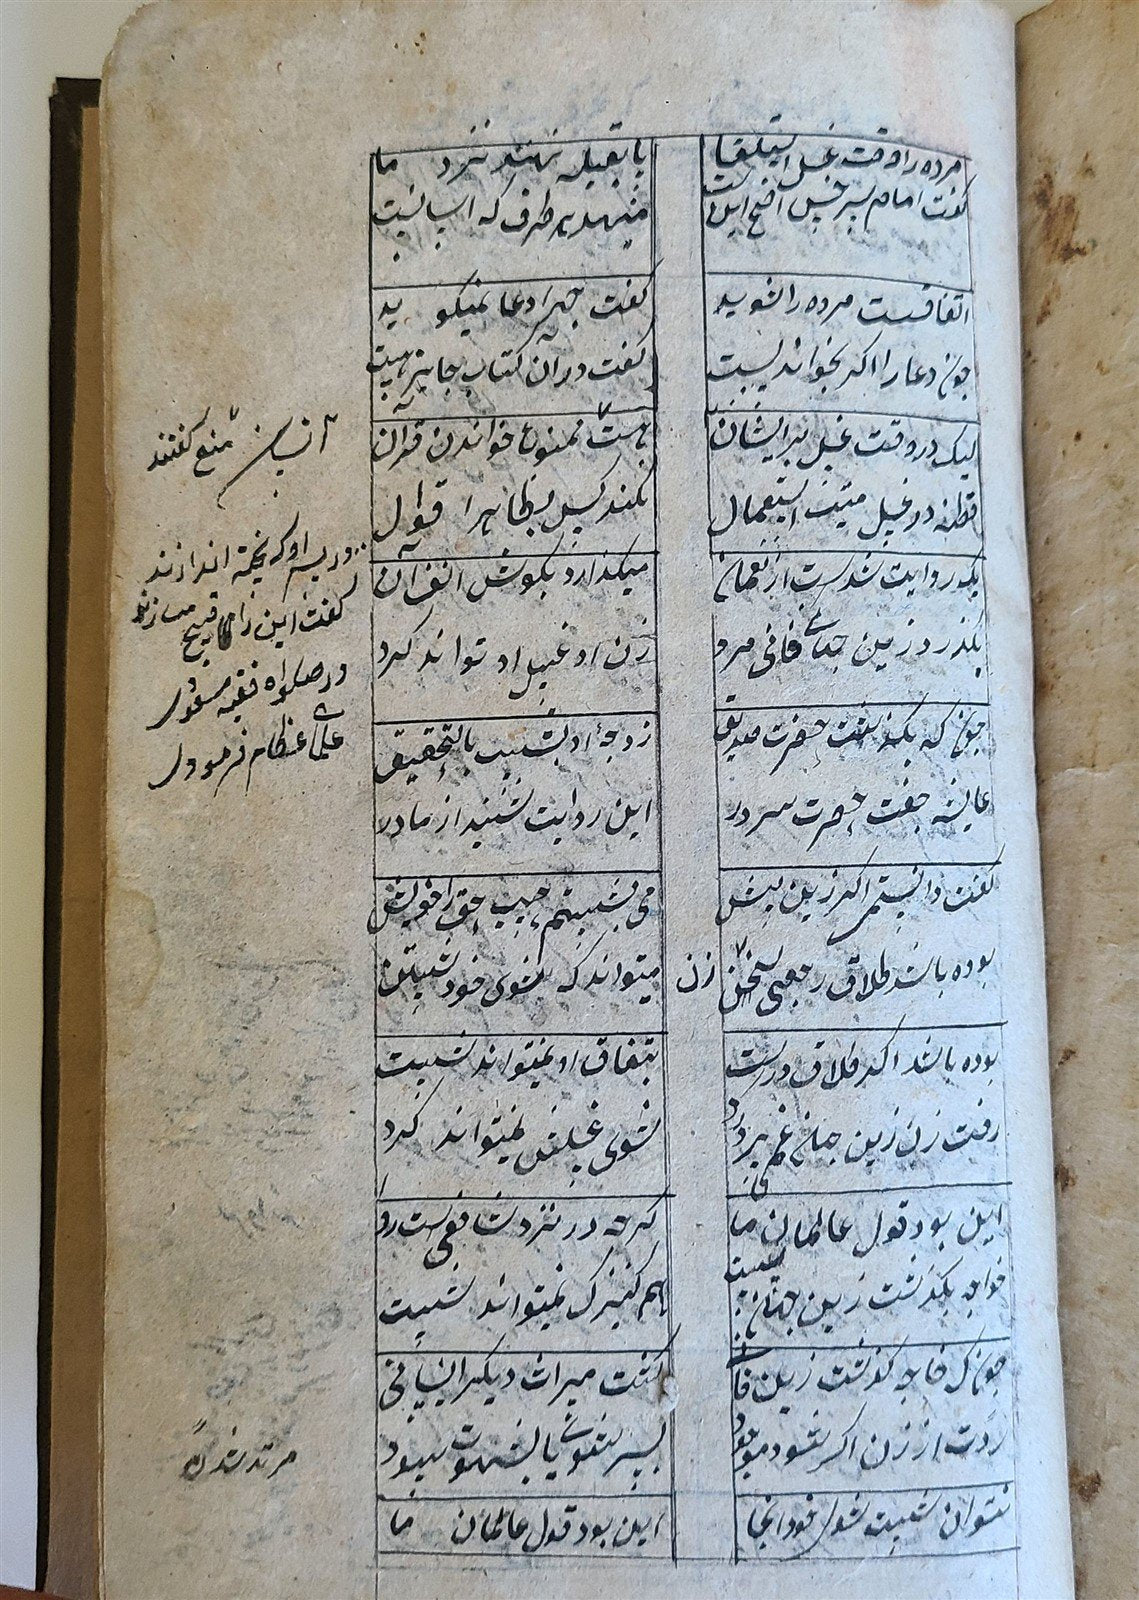 مرده را وقت غسل استلقا
پا بقبله نهند نزد ما
گفت امام سرخسی اصح این
مینهد هر طرف که آسانیست
اتفاقست مرده را شوید
گفت جهرا دعا نمیگوید
چون دعا را اگر بخواند پست
گفت در آن کتاب جایز هست
لیک در وقت غسل بر ایشان
هست ممنوع خواندن قرآن
در غسل میت استعمال
نکند کس بظاهرا قوال
یک روایت شدست از نعمان
میگذارد بگوش انف آن
بگذرد زین جهان فانی مرد
زن او غسل او تواند کرد
چون که بگذشت حضرت صدیق
زوجه او بشست بالتحقیق
عایشه جفت حضرت سرور
این روایت شنید از مادر
گفت دانستمی اگر زین پیش
می بشستم حبیب حق را خویش
بوده باشد طلاق رجعی
زن میتواند که شوی خود شستن
بوده باشد اگر طلاق درست
بتفاق او نمیتواند شست
رفت زن زین جهان غم پرورد
شوی غسلش نمیتواند کرد
این بود قول عالمان ما
گرچه در نزد شافعی ست روا
خواجه بگذشت زین جهان
هم کنیزک نمیتواند شست
چونکه خواجه گذشت زین فانی
گشت میراث دیگر
ردت از زن اگر شود موجود
پسر شوی یا بشهوت سود
نتوان شست شوی خود آنجا
این بود قول عالمان ما
منع گفتند
پنبه اندازند
گفت این را قبیح
در صلواة فقیه مسعودی
علمای عظام فرمودی
مرتد شدن